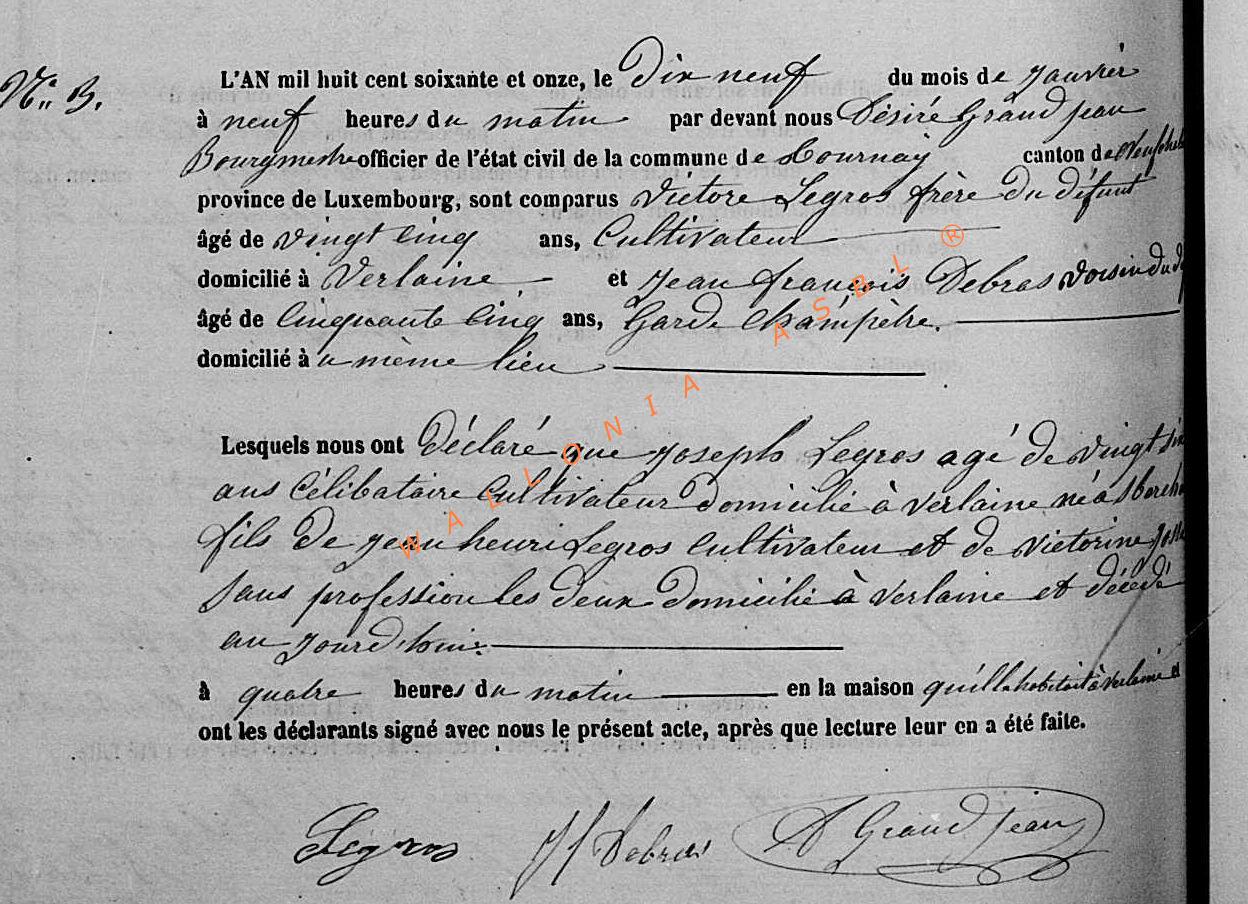 N° 3.
L'AN mil huit cent soixante et onze, le Dix neuf du mois de Janvier
à neuf heures du matin par devant nous Désiré Grand Jean
Bourgmestre officier de l'état civil de la commune de Tournay canton de
province de Luxembourg, sont comparus Victore Legros frère du défunt
âgé de vingt cinq ans, Cultivateur
domicilié à Verlaine et Jean françois Debras voisin du
âgé de Cinquante Cinq ans, Garde Champêtre.
domicilié à u même lieu
Lesquels nous ont Déclaré que Joseph Legros agé de vingt six
ans Célibataire Cultivateur domicilié à Verlaine né à
fils de jean henri Legros Cultivateur et de Victorine
Sans profession les deux domicilié à Verlaine et décédé
au jourd'hui
à quatre heures du matin en la maison qu'il habitait à Verlaine et
ont les déclarants signé avec nous le présent acte, après que lecture leur en a été faite.
Legros JF Debras D Grand Jean
WALLONIA ASBL ®